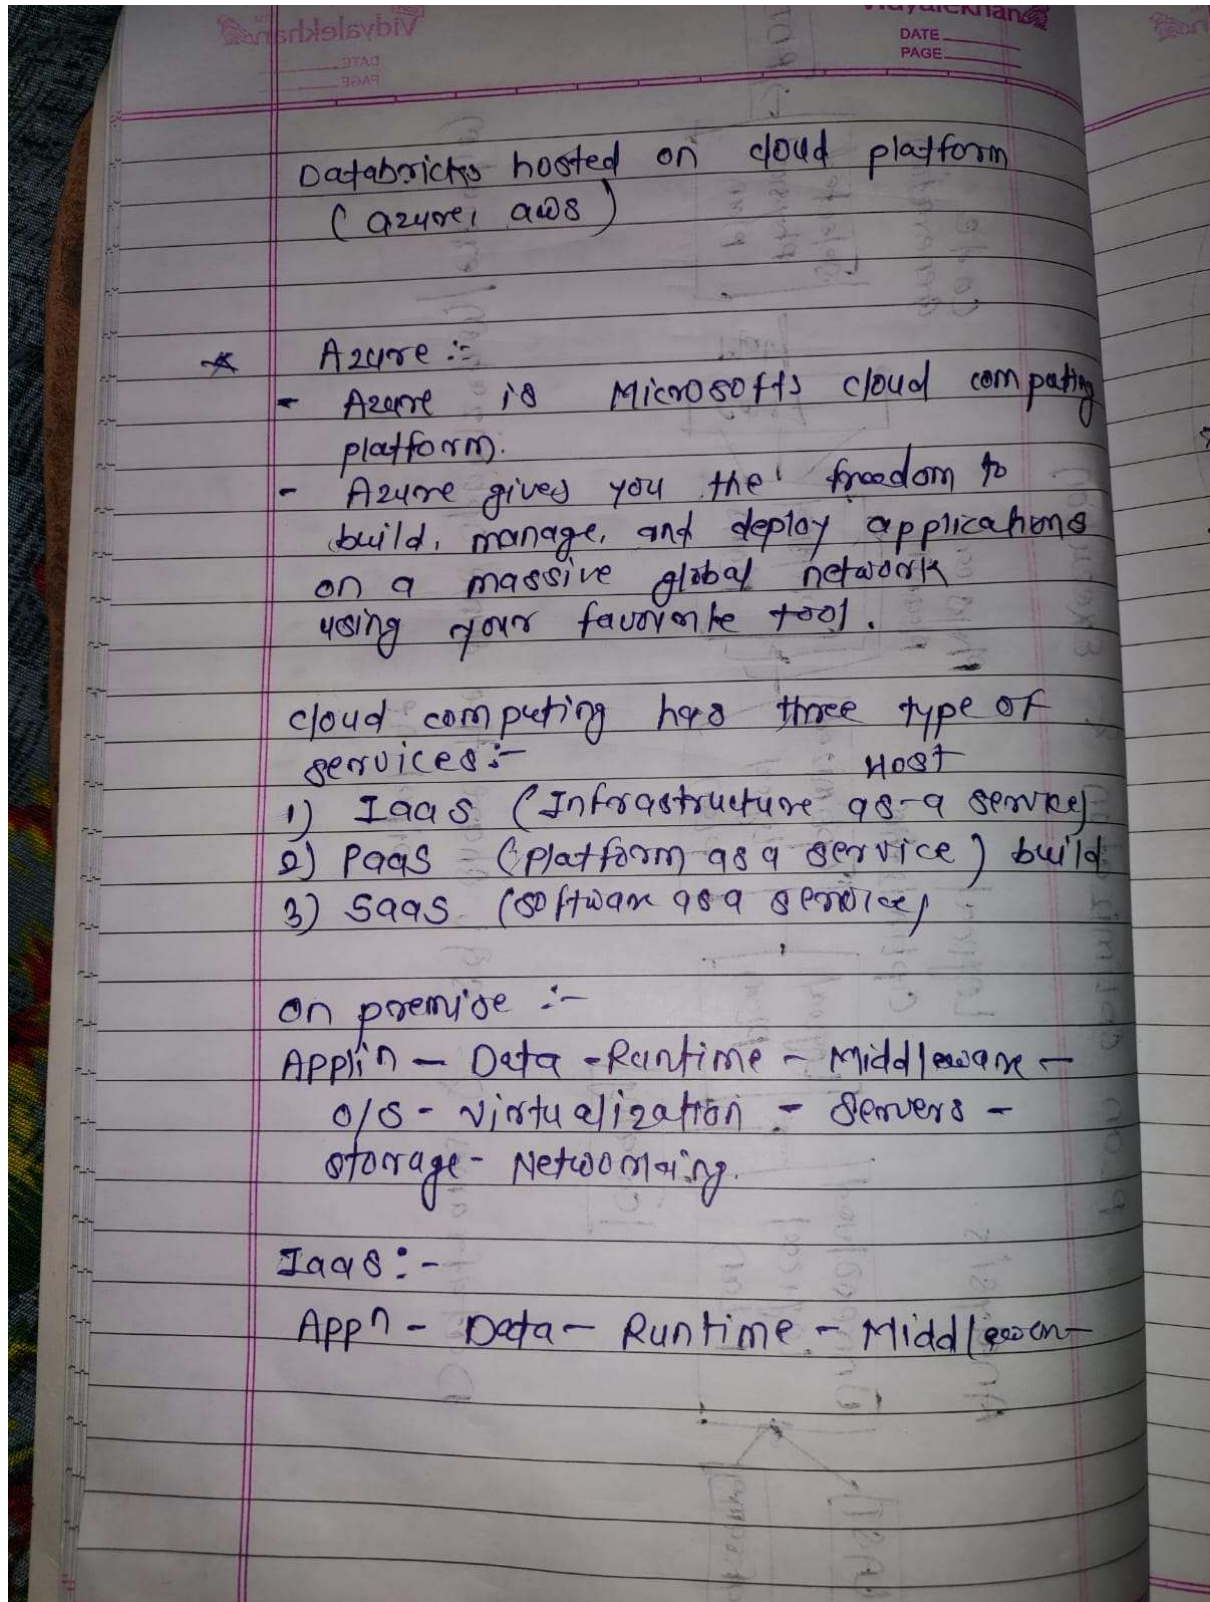 Vidyalekhan
DATE
PAGE
Databricks hosted on cloud platform
(azure, aws)
* Azure :-
- Azure is Microsofts cloud computing
platform.
- Azure gives you the freedom to
build, manage, and deploy applications
on a massive global network
using your favorite tool.
cloud computing has three type of
services :-
HOST
1) Iaas (Infrastructure as-a service)
2) Paas (platform as a service) build
3) Saas (software as a service)
on premise :-
Appl'n - Data - Runtime - Middleware -
O/S - Virtualization - Servers -
storage - Networking.
Iaas :-
Appn - Data - Runtime - Middleware